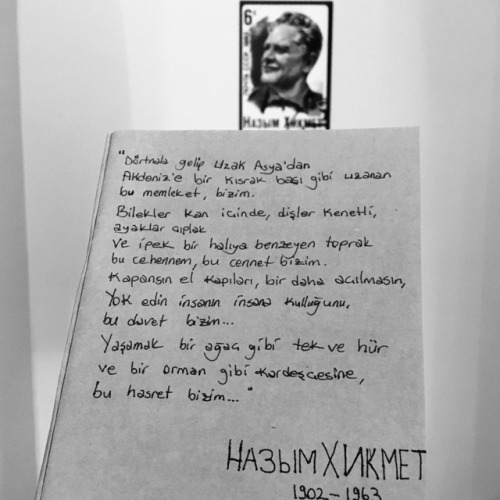 6к
ПОЧТА СССР 1982
НАЗЫМ ХИКМЕТ
"Dörtnala gelip Uzak Asya'dan
Akdeniz'e bir kısrak başı gibi uzanan
bu memleket, bizim.
Bilekler kan içinde, dişler kenetli,
ayaklar çıplak
ve ipek bir halıya benzeyen toprak
bu cehennem, bu cennet bizim.
Kapansın el kapıları, bir daha açılmasın,
Yok edin insanın insana kulluğunu,
bu davet bizim...
Yaşamak bir ağaç gibi tek ve hür
ve bir orman gibi kardeşçesine,
bu hasret bizim..."
НАЗЫМ ХИКМЕТ
1902-1963